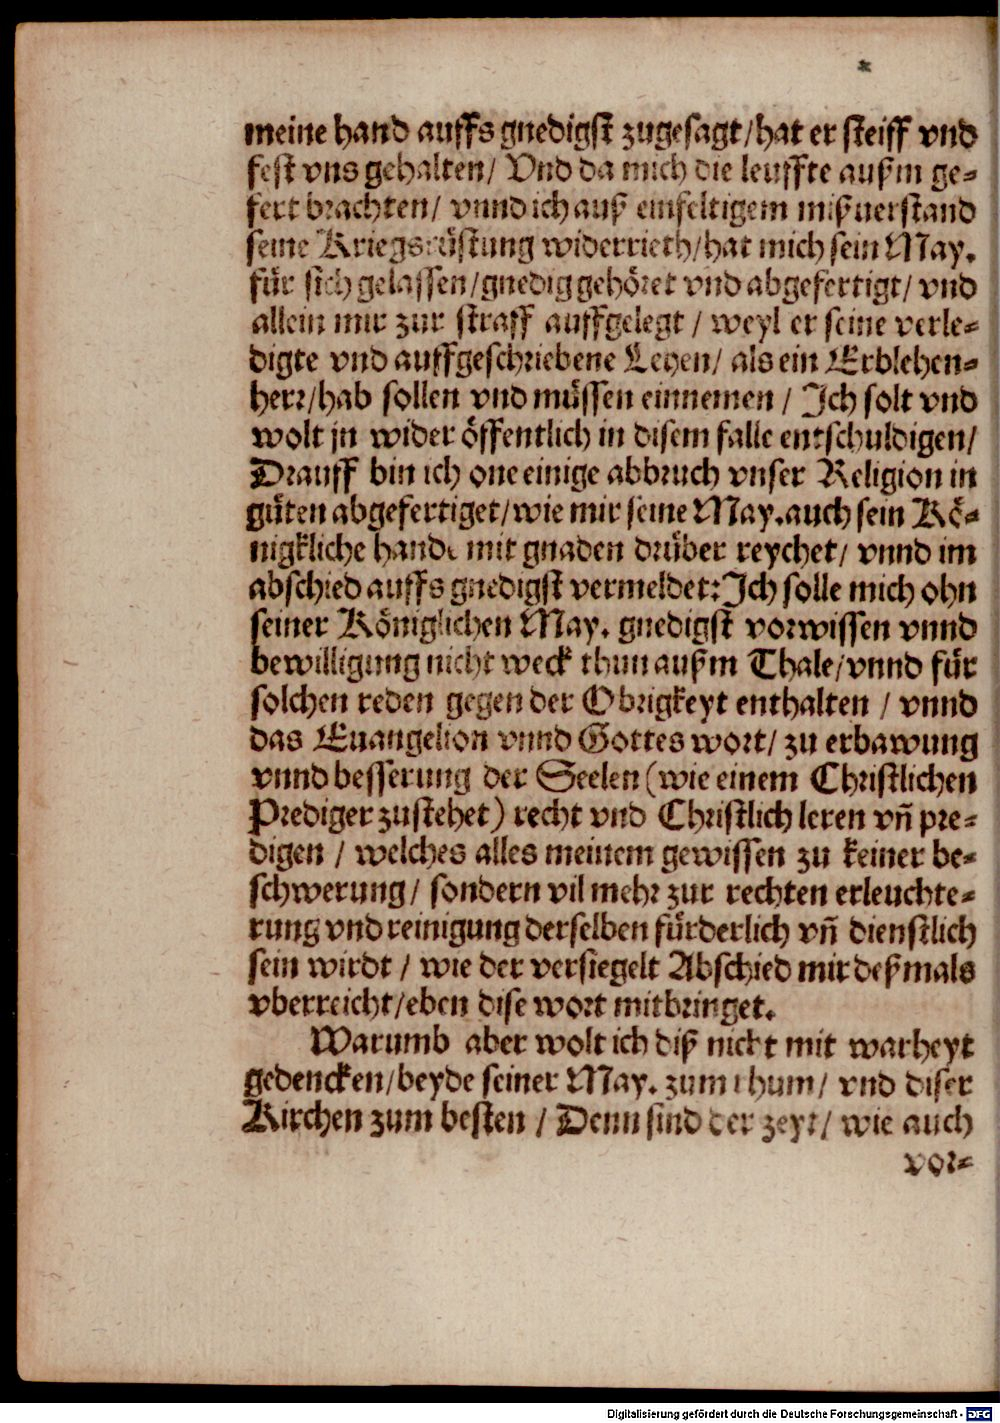 meine hand auffs gnedigst zugesagt/hat er steiff vnd
fest vns gehalten/ Vnd da mich die leuffte außm ge-
fert brachten/ vnnd ich auß einfeltigem mißuerstand
seine Kriegsrüstung widerrieth/hat mich sein May.
für sich gelassen/gnedig gehöret vnd abgefertigt/ vnd
allein mir zur straff auffgelegt / weyl er seine verle-
digte vnd auffgeschriebene Lehen/ als ein Erblehen-
herr/hab sollen vnd müssen einnemen / Ich solt vnd
wolt jn wider öffentlich in disem falle entschuldigen/
Drauff bin ich one einige abbruch vnser Religion in
güten abgefertiget/wie mir seine May.auch sein Kö-
nigkliche hande mit gnaden drüber reychet/ vnnd im
abschied auffs gnedigst vermeldet:Ich solle mich ohn
seiner Königlichen May. gnedigst vorwissen vnnd
bewilligung nicht weck thun außm Thale/vnnd für
solchen reden gegen der Obrigkeyt enthalten / vnnd
das Euangelion vnnd Gottes wort/ zu erbawung
vnnd besserung der Seelen (wie einem Christlichen
Prediger zustehet) recht vnd Christlich leren vñ pre-
digen / welches alles meinem gewissen zu keiner be-
schwerung/ sondern vil mehr zur rechten erleuchte-
rung vnd reinigung derselben fürderlich vñ dienstlich
sein wirdt / wie der versiegelt Abschied mir deßmals
vberreicht/eben dise wort mitbringet.
Warumb aber wolt ich diß nicht mit warheyt
gedencken/beyde seiner May. zum rhum/ vnd diser
Kirchen zum besten / Denn sind der zeyt/ wie auch
vor-
Digitalisierung gefördert durch die Deutsche Forschungsgemeinschaft - DFG